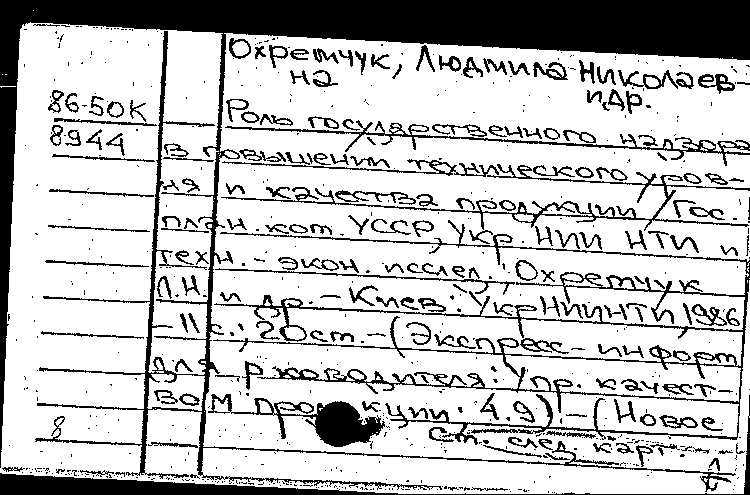 Охремчук, Людмила Николаев-
на и др.
86-50К Роль государственного надзора
8944 в повышении технического уров-
ня и качества продукции / Гос.
план. ком. УССР, Укр. НИИ НТИ и
техн. - экон. исслед.; Охремчук
Л.Н. и др. - Киев: УкрНИИНТИ, 1986
- 11 с.; 20 ст. - (Экспресс-информ
для руководителя: Упр. качест-
вом продукции; 4.9). - (Новое
8 см. след. карт.